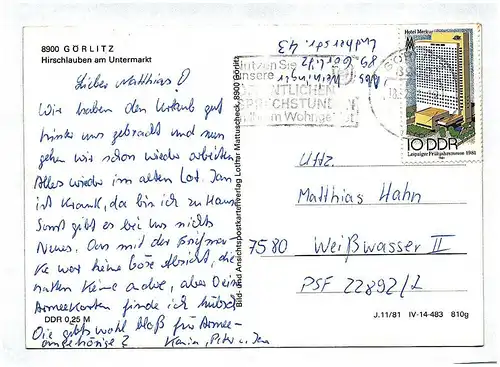 8900 GÖRLITZ
Hirschlauben am Untermarkt
Lieber Matthias!
Wir haben den Urlaub gut
hinter uns gebracht und nun
gehen wir schon wieder arbeiten.
Alles wieder im alten Lot. Jan
ist krank, da bin ich zu Hause
Sonst gibt es bei uns nichts
Neues. Das mit der Briefmar
ke war keine böse Absicht, die
hatten keine adre, aber Deine
Armeekarten finde ich hübsch
Die gibts wohl bloß für Armee-
angehörige? Karin, Peter u. Jan
DDR 0,25 M
Bild- und Ansichtspostkartenverlag Lothar Manuscheck, 8900 Görlitz
Abs.
89 Görlitz
Lutherstr. 43
Nutzen Sie
unsere
ÖFFENTLICHEN
SPRECHSTUNDEN
Wohngebiet
Hotel Merkur
10 DDR
Leipziger Frühjahrsmesse 1981
Uffz.
Matthias Hahn
7580 Weißwasser II
PSF 22892/L
J.11/81 IV-14-483 810g